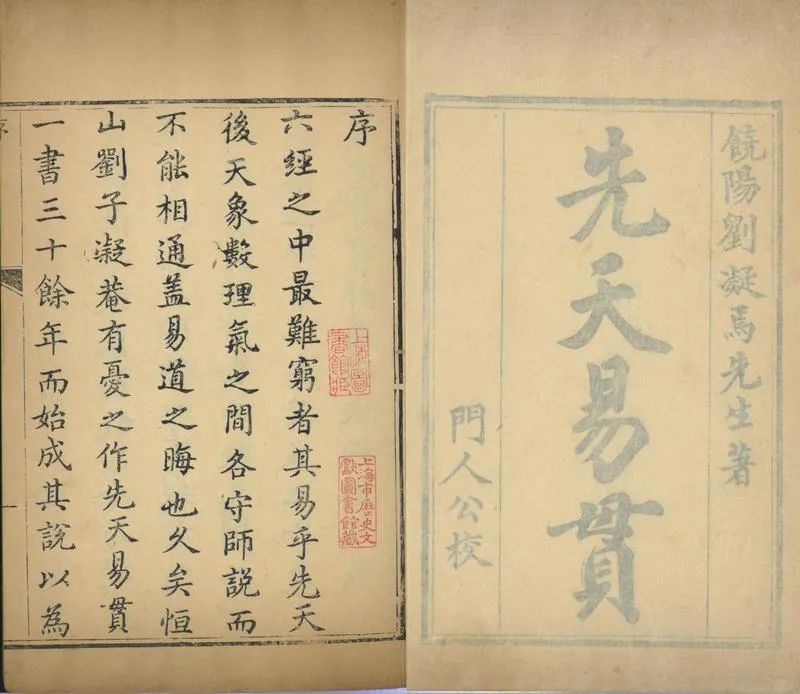 饒陽劉凝焉先生著
先天易貫
門人公校
序
六經之中最難窮者其易乎先天
後天象數理氣之間各守師說而
不能相通盖易道之晦也久矣恒
山劉子凝菴有憂之作先天易貫
一書三十餘年而始成其說以為
上海圖
書館藏
上海市歷史文
獻圖書館藏
序